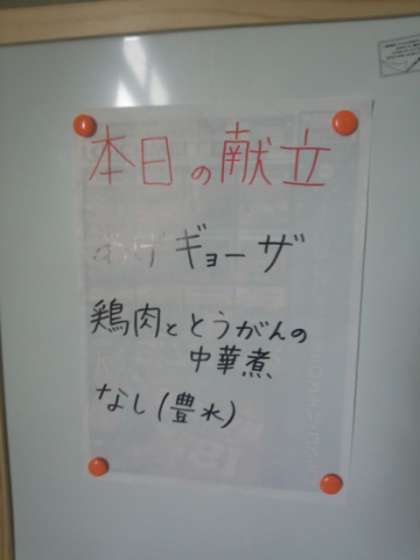 本日の献立
あげギョーザ
鶏肉ととうがんの
中華煮
なし(豊水)